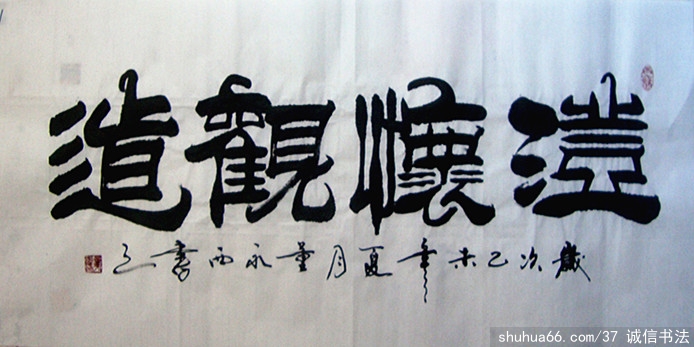 澄懷觀道
歲次乙未年夏月董永西書之
shuhua66.com/37 诚信书法